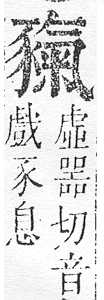 虛器切音
戲豕息